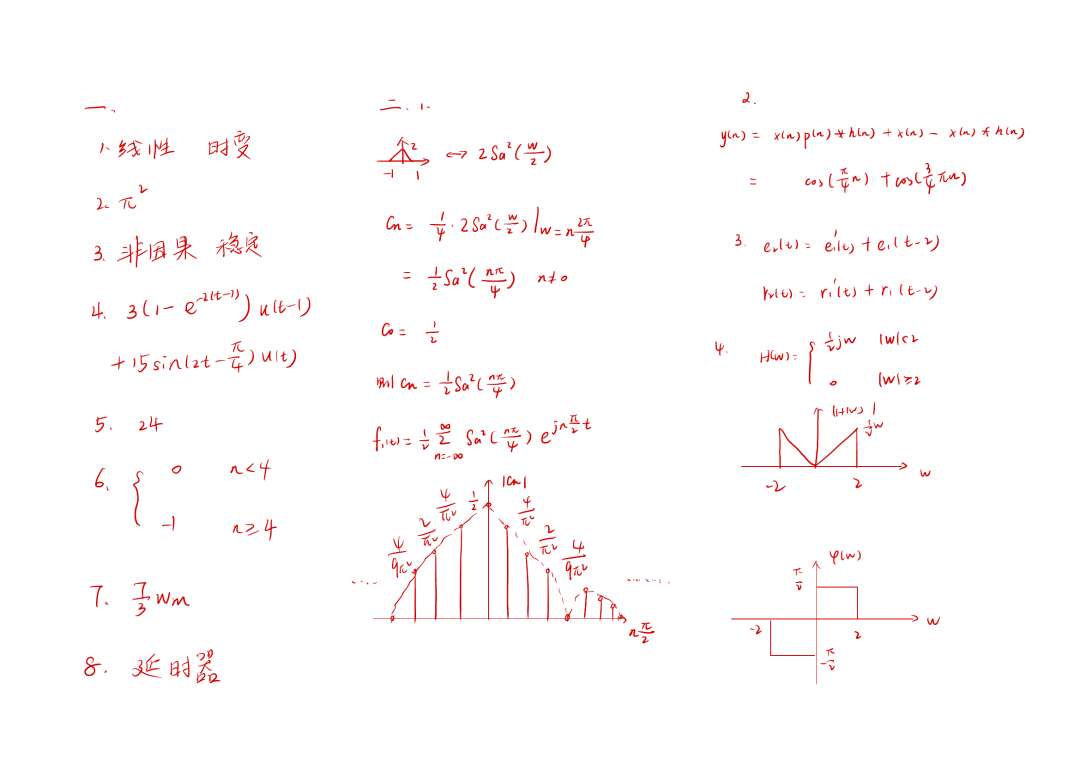 一、
1. 线性 时变
2. π²
3. 非因果 稳定
4. 3(1-e^{-2(t-1)})u(t-1)
+15sin(2t-π/4)u(t)
5. 24
6. { 0 n<4
-1 n≥4
7. 7/3 Wm
8. 延时器
二、1.
2
-1 1 ↔ 2Sa²(W/2)
Cn = 1/4·2Sa²(W/2)|W=n2π/4
= 1/2Sa²(nπ/4) n≠0
C0 = 1/2
则 Cn = 1/2Sa²(nπ/4)
f1(t) = 1/2 Σ_{n=-∞}^{∞} Sa²(nπ/4) e^{jnπ/2t}
|Cn|
4/9π² 2/π² 4/π² 1/2 4/π² 2/π² 4/9π²
nπ/2
2.
y(n) = x(n)p(n)*h(n) + x(n) - x(n)*h(n)
= cos(π/4n) + cos(3/4πn)
3. e2(t) = e1'(t) + e1(t-2)
r2(t) = r1'(t) + r1(t-2)
4. H(W) = { 1/2jW |W|<2
0 |W|≥2
|H(W)|
1/2W
-2 2 W
φ(W)
π/2
-2 2 W
-π/2